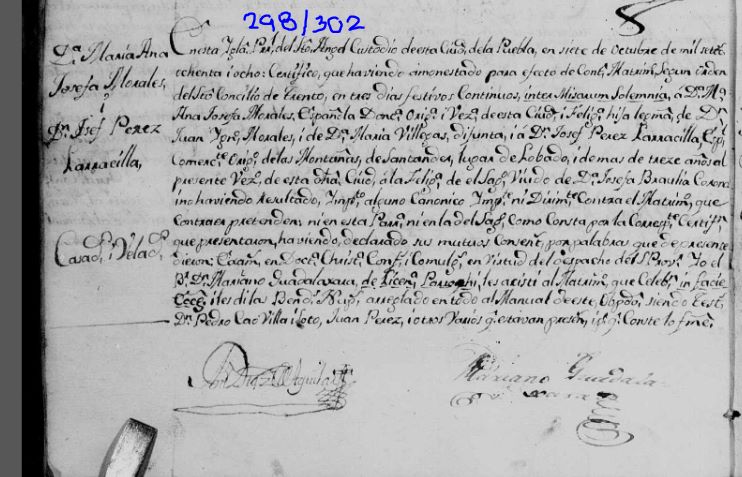 298/302
D.ª María Ana
Josefa Morales,
i
D.n Josef Perez
Larracilla,
Casad.s i Velad.s
En esta Igl.ª Parl. del Sto. Angel Custodio de esta Ciud. de la Puebla, en siete de Octubre de mil sete.
ochenta i ocho: Certifico, que haviendo amonestado para efecto de Contr. Matrim. segun orden
del Sto. Concilio de Trento, en tres dias festivos Continuos, inter Misarum Solemnia, a D.ª M.ª
Ana Josefa Morales, Española Donc.ª Orig.ª i Vez.ª de esta Ciud. i Felig.ª hija legma. de D.n
Juan Ign.º Morales, i de D.ª Maria Villegas, difunta, i a D.n Josef Perez Larracilla, Esp.l
Comerc.te Orig.º de las Montañas, de Santander, lugar de Lobado, i de mas de treze años al
presente Vez.º de esta dha. Ciud. á la Felig.ª de el Sag.º Viudo de D.ª Josefa Braulia Corona
i no haviendo resultado, Imp.to alguno Canonico Imp.te ni Dirim.te Contra el Matrim. que
contraer pretenden; ni en esta Parr.ª ni en la del Sag.º Como Consta por la Corresp.te Certif.n
que presentaron, haviendo, declarado sus mutuos Consent.s por palabras que de presente
dieron; Exam.s en Doct.ª Christ.ª Conf.s i Comulg.s en Virtud del despacho del S. Provis.r Yo el
B.r D.n Mariano Guadalaxara, de Licen.ª Parrochi, les asistí al Matrim. que Celebr.n in facie
Eccle. i les di las Bend.s Nup.s arreglado en todo al Manual de este Obpdo. siendo Test.s
D.n Pedro Cao Villa i Soto, Juan Perez, i otros Varios q.e estavan presen.s i p.ª q.e Conste lo fmé.
Mariano Guadala
xara